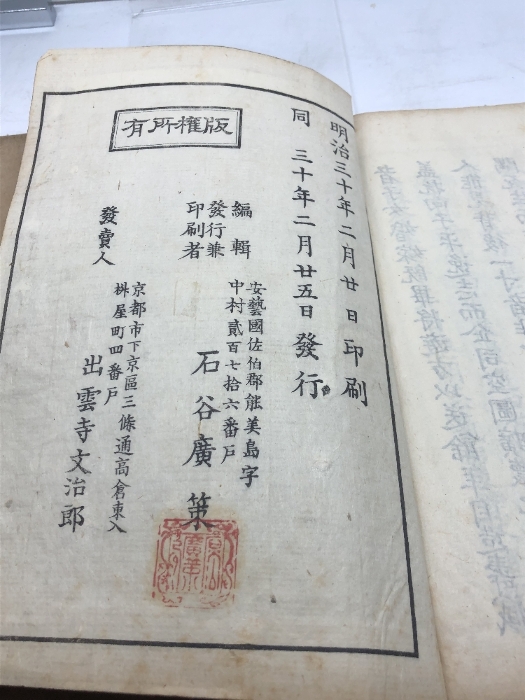 明治三十年二月廿日印刷
同 三十年二月廿五日發行
版權所有
編輯
發行兼
印刷者
安藝國佐伯郡能美島字
中村貳百七拾六番戶
石谷廣策
發賣人
京都市下京區三條通高倉東入
桝屋町四番戶
出雲寺文治郎